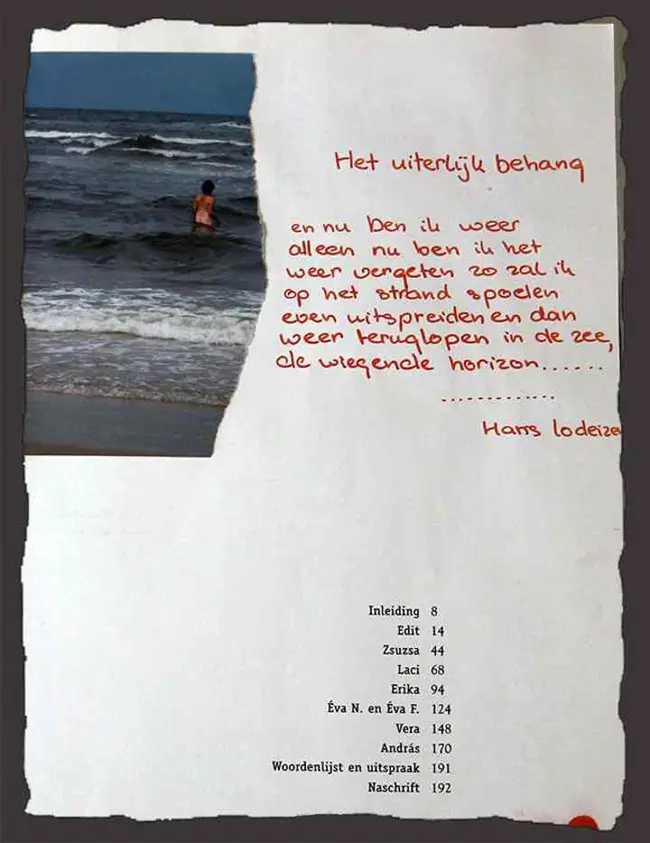 Het uiterlijk behang
en nu ben ik weer
alleen nu ben ik het
weer vergeten zo zal ik
op het strand spoelen
even uitspreiden en dan
weer teruglopen in de zee,
de wiegende horizon......
.............
Hans lodeize
Inleiding 8
Edit 14
Zsuzsa 44
Laci 68
Erika 94
Éva N. en Éva F. 124
Vera 148
András 170
Woordenlijst en uitspraak 191
Naschrift 192